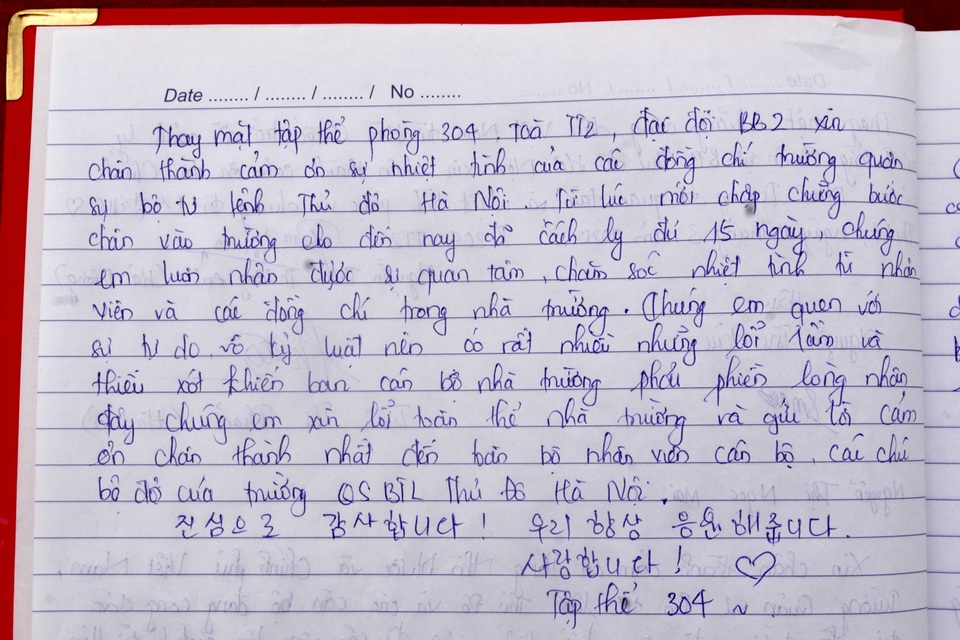 Date ........ / ........ / ........ / No ........
Thay mặt tập thể phòng 304, Toà TT2, đại đội BB2 xin
chân thành cảm ơn sự nhiệt tình của các đồng chí trường quân
sự bộ tư lệnh Thủ đô Hà Nội từ lúc mới chập chững bước
chân vào trường cho đến nay đã cách ly đủ 15 ngày chúng
em luôn nhận được sự quan tâm, chăm sóc nhiệt tình từ nhân
viên và các đồng chí trong nhà trường. Chúng em quen với
sự tự do, vô kỷ luật nên có rất nhiều những lỗi lầm và
thiếu xót khiến ban cán bộ nhà trường phải phiền lòng nhân
đây chúng em xin lỗi toàn thể nhà trường và gửi lời cảm
ơn chân thành nhất đến toàn bộ nhân viên cán bộ, các chú
bộ đội của trường QS BTL Thủ Đô Hà Nội.
진심으로 감사합니다! 우리 항상 응원해줍니다.
사랑합니다! ♡
Tập thể 304 ~